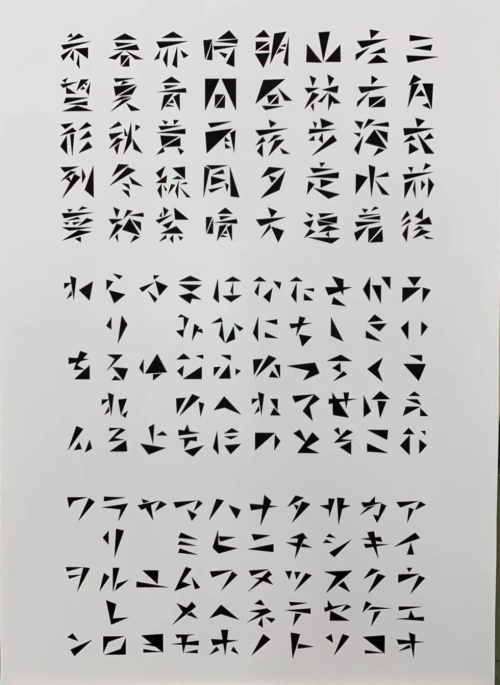 三角衣前後
左右海水着
山林歩
朝昼夜夕方
時間雨風晴
赤青黄緑紫
春夏秋冬梅
希望形列華
あいうえお
かきくけこ
さしすせそ
たちつてと
なにぬねの
はひふへほ
まみむめも
やゆよ
らりるれろ
わをん
アイウエオ
カキクケコ
サシスセソ
タチツテト
ナニヌネノ
ハヒフヘホ
マミムメモ
ヤユヨ
ラリルレロ
ワヲン